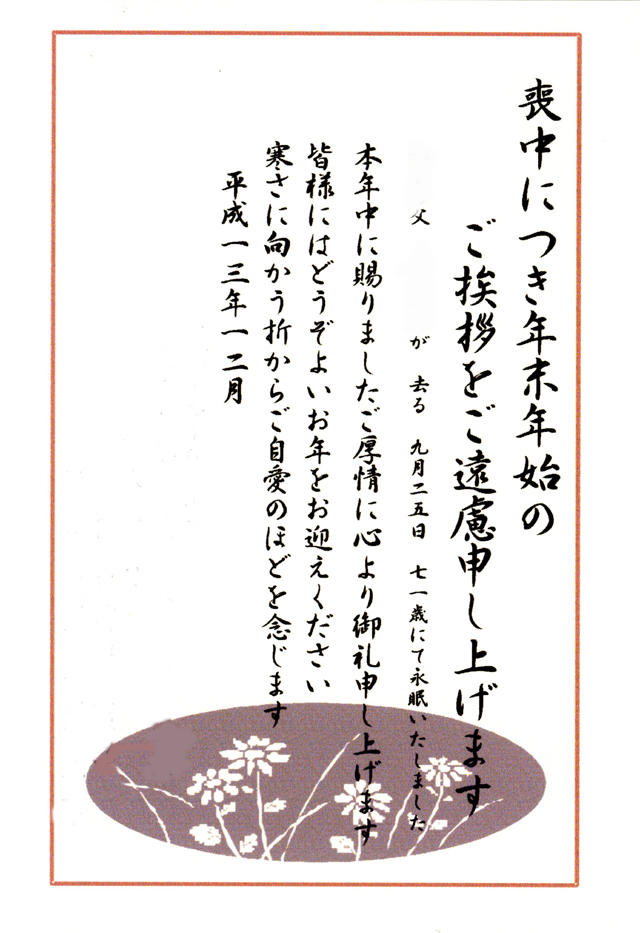 喪中につき年末年始の
ご挨拶をご遠慮申し上げます
父 が 去る 九月二五日 七一歳にて永眠いたしました
本年中に賜りましたご厚情に心より御礼申し上げます
皆様にはどうぞよいお年をお迎えください
寒さに向かう折からご自愛のほどを念じます
平成一三年一二月